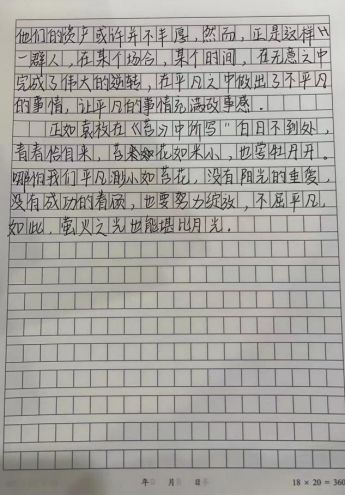 他们的资产或许并不丰厚，然而，正是这样的
一群人，在某个场合，某个时间，在无意之中
完成了伟大的逆转，在平凡之中做出了不平凡
的事情，让平凡的事情充满故事感．
正如袁枚在《苔》中所写"白日不到处，
青春恰自来，苔花如米小，也学牡丹开．
哪怕我们平凡渺小如苔花，没有阳光的垂爱，
没有成功的眷顾，也要努力绽放，不屈平凡．
如此，萤火之光也能堪比月光．
年 月 日
18 × 20 = 360